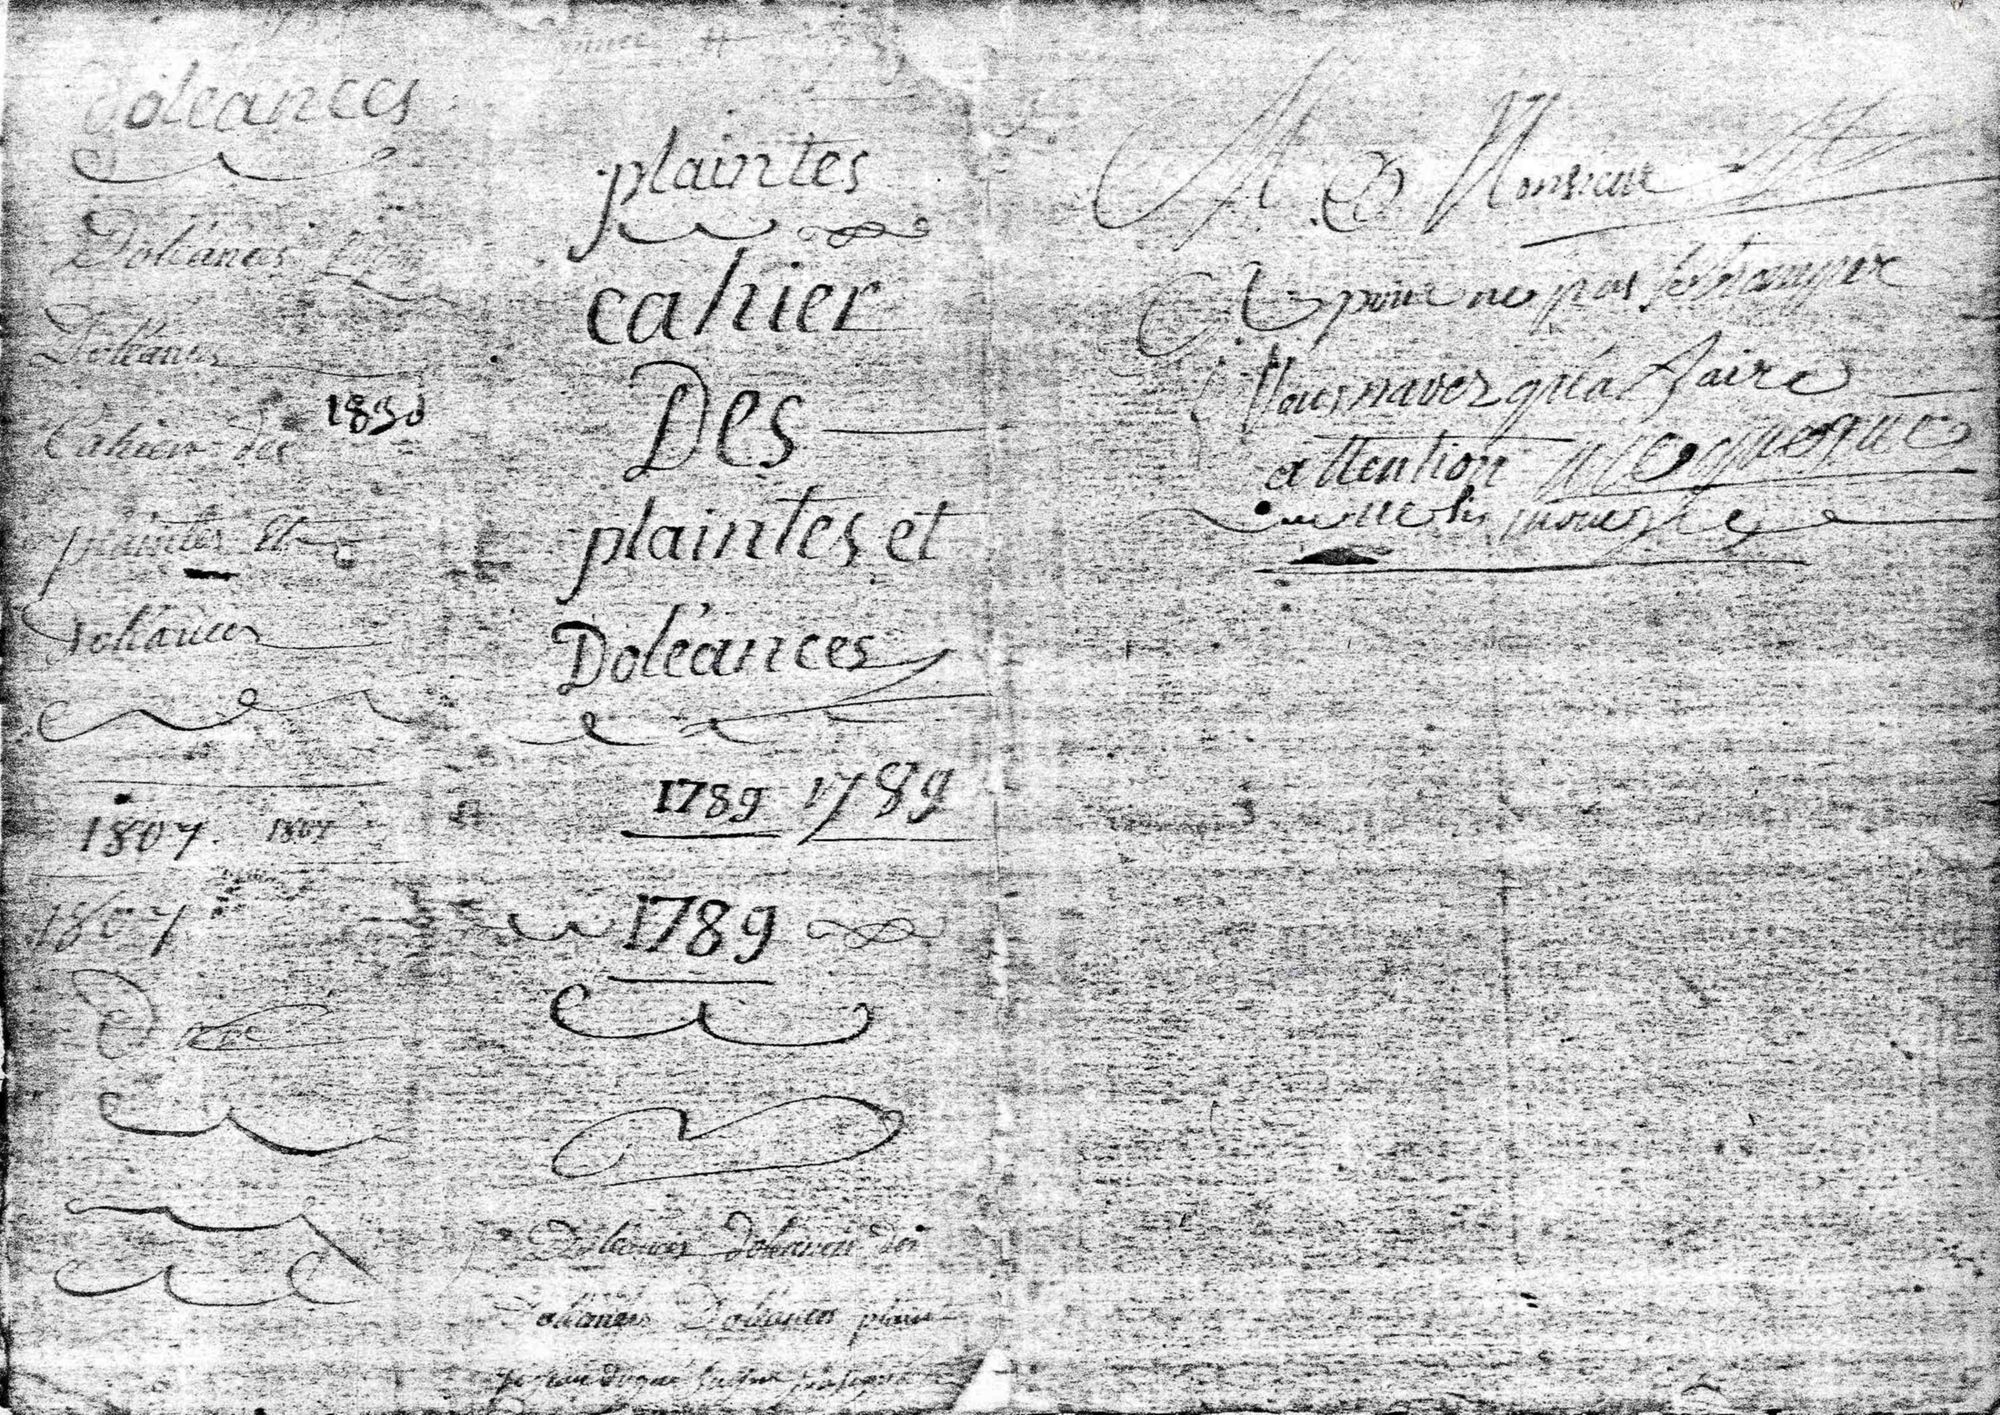 doléances
Doléances
Doléances
1830
Cahier des
plaintes Et
Doléances
1807. 1807
1807
plaintes
cahier
Des
plaintes et
Doléances
1789 1789
1789
Doléances doléances des
doléances Doléances plain
A Monsieur
pour ne pas se tromper
Vous navez qu'a faire
attention